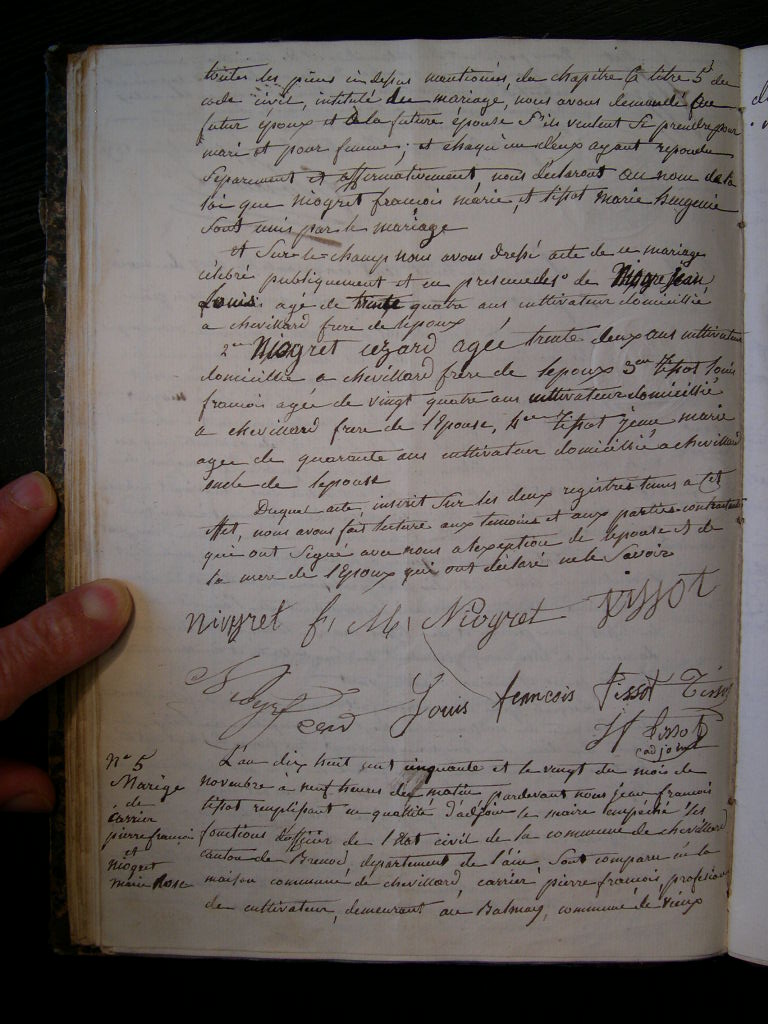 toutes les pièces ci dessus mentionnées, du chapitre 6 titre 5 du
code civil, intitulé du mariage, nous avons demandé au
futur époux et à la future épouse s'ils veulent se prendre pour
mari et pour femme; et chaqu'un d'eux ayant repondu
Séparement et affirmativement, nous déclarons au nom de la
loi que niogret francois marie, et tissot marie Eugenie
Sont unis par le mariage
et Sur le champ nous avons dressé acte de ce mariage
célébré publiquement et en presence de 1° de Niogre jean
Louis agé de trente quatre ans cultivateur domicillié
a chevillard frere de lepoux
2em Niogret cezard agée trente deux ans cultivateur
domicillie a chevillard frère de lepoux 3em tissot louis
francois agée de vingt quatre ans cultivateur domicillié
a chevillard frere de l'Epouse, 4em tissot jean marie
agee de quarante ans cultivateur domicillié a chevillard
oncle de lepouse
Duquel acte, inscrit Sur les deux registres tenus a cet
effet, nous avons fait lecture aux temoins et aux parties contractantes
qui ont Signé avec nous a lexception de lepouse et de
la mere de l'Epoux qui ont déclaré ne le Savoir
niogret f. M. Niogret tissot
Louis francois Tissot
tissot
adjoint
N° 5
Marige
de
Carrier
pierre francois
et
niogret
marie Rose
L'an dix huit cent cinquante et le vingt du mois de
novembre à neuf heures du matin pardevant nous jean francois
tissot remplissant en qualité d'adjoin le maire empeché les
fonctions d'officier de l'Etat civil de la commune de chevillard
canton de Brenod, département de l'ain, Sont comparu en la
maison commune de chevillard, carrier, pierre francois profession
de cultivateur, demeurant au Balmay, commune de vieux